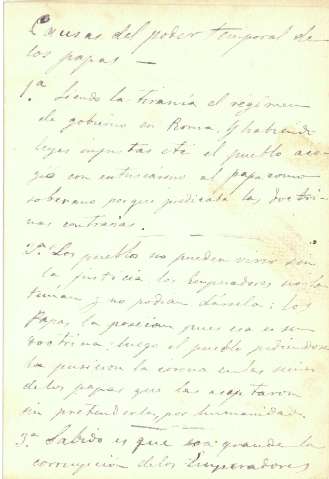 Causas del poder temporal de
los papas —
1ª. Siendo la tiranía el régimen
de gobierno en Roma, y habiendo
leyes injustas etc el pueblo aco-
gio con entusiasmo al papa como
soberano porque predicaba las doctri-
nas contrarias.
2ª Los pueblos no pueden vivir sin
la justicia los Emperadores no la
tenian y no podian dársela; los
Papas la poseian pues era su
doctrina: luego el pueblo
la pusieron la corona en las sienes
de los papas que las aceptaron
sin pretenderlas, por humanidad.
3ª Sabido es que era grande la
corrupcion de los Emperadores